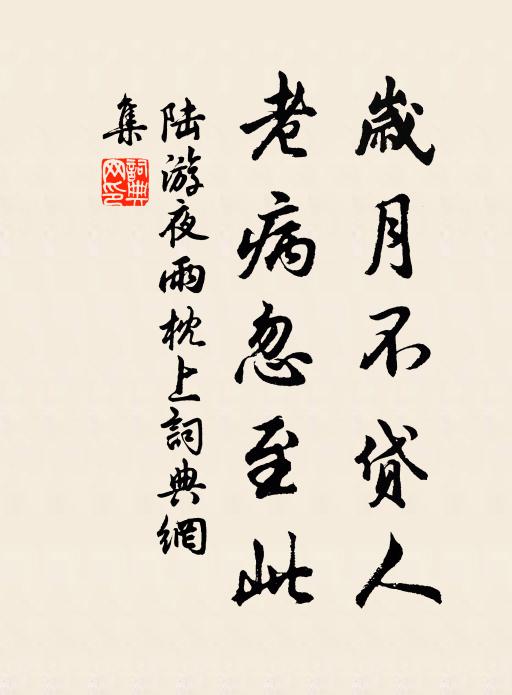 歲月不貸人
老病忽至此
陸游夜雨枕上詞典網
集
詞典
网印